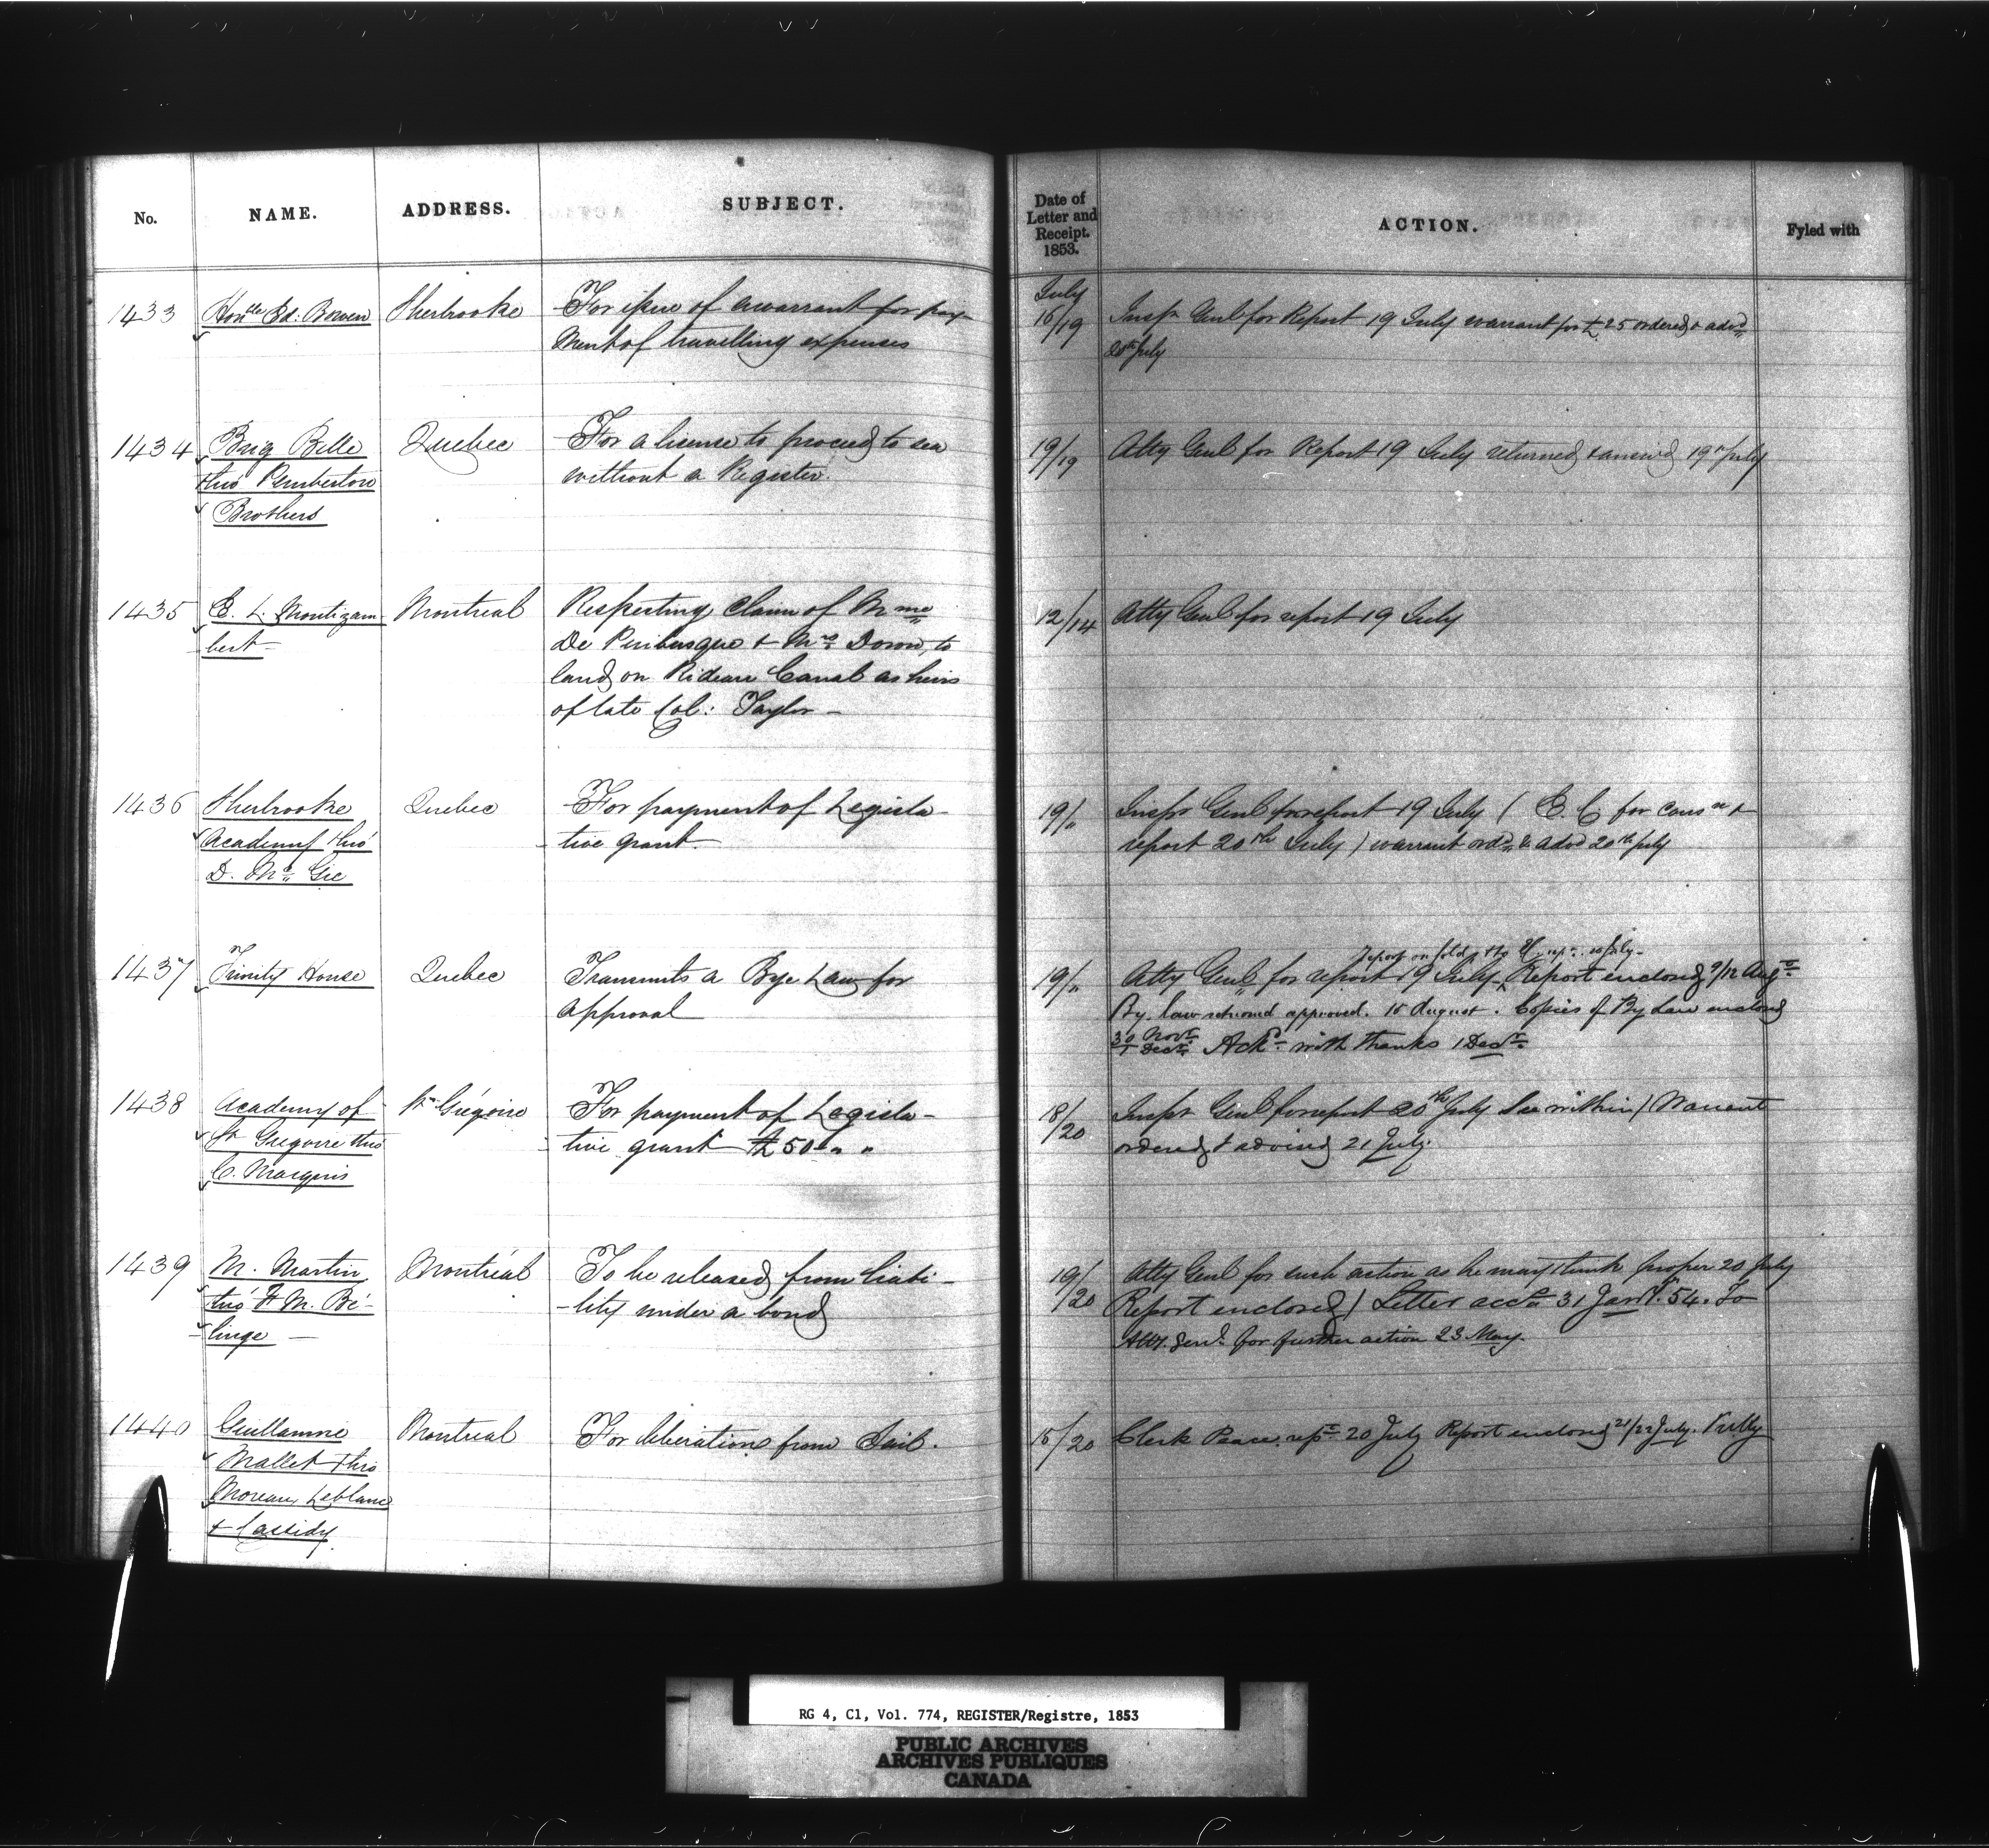 No. NAME. ADDRESS. SUBJECT. Date of Letter and Receipt. 1853. ACTION. Fyled with
1433 Honble Ed: Bowen Sherbrooke For issue of a warrant for pay- July 16/19 Inspr Genl for Report 19 July warrant for £25 ordered & advd
ment of travelling expenses 20th July
1434 Brig Belle Quebec For a license to proceed to sea 19/19 Atty Genl for Report 19 July returned & answd 19th July
thro' Pemberton without a Register.
Brothers
1435 E. L. Montizam- Montreal Respecting claim of Mme 12/14 Atty Genl for report 19 July
bert De Puibusque & Mrs Doron, to
land on Rideau Canal as heirs
of late Col: Taylor -
1436 Sherbrooke Quebec For payment of Legisla- 19/" Inspr Genl for report 19 July ( E. C for consn &
Academy thro' tive grant. report 20th July ) warrant ordd & advd 20th July
D. Mc Gie
1437 Trinity House Quebec Transmits a Bye Law for 19/" Atty Genl for report 19 July Report enclosed 9/12 Augt
approval By. law returned approved. 15 August. Copies of By Law enclosed
30 Novr 1 Decr Ackd with thanks 1 Decr
1438 Academy of St Grégoire For payment of Legisla- 18/20 Inspr Genl for report 20th July See within / Warrent
St Gregoire thro tive grant £50 " " ordered & advised 21 July.
C. Marquis
1439 M. Martin Montréal To be released from liabi- 19/20 Atty Genl for such action as he may think proper 20 July
thro' F M. Bé- -lity under a bond Report enclosed / Letter 31 Jany. 54. To
linge - Atty. Genl. for further action 23 May.
1440 Guillaume Montreal For liberation from Jail. 15/20 Clerk Peace rept 20 July Report enclosed 21/22 July.
Mallet thro
Moreau, Leblanc
& Cassidy.
RG 4, C1, Vol. 774, REGISTER/Registre, 1853
PUBLIC ARCHIVES
ARCHIVES PUBLIQUES
CANADA